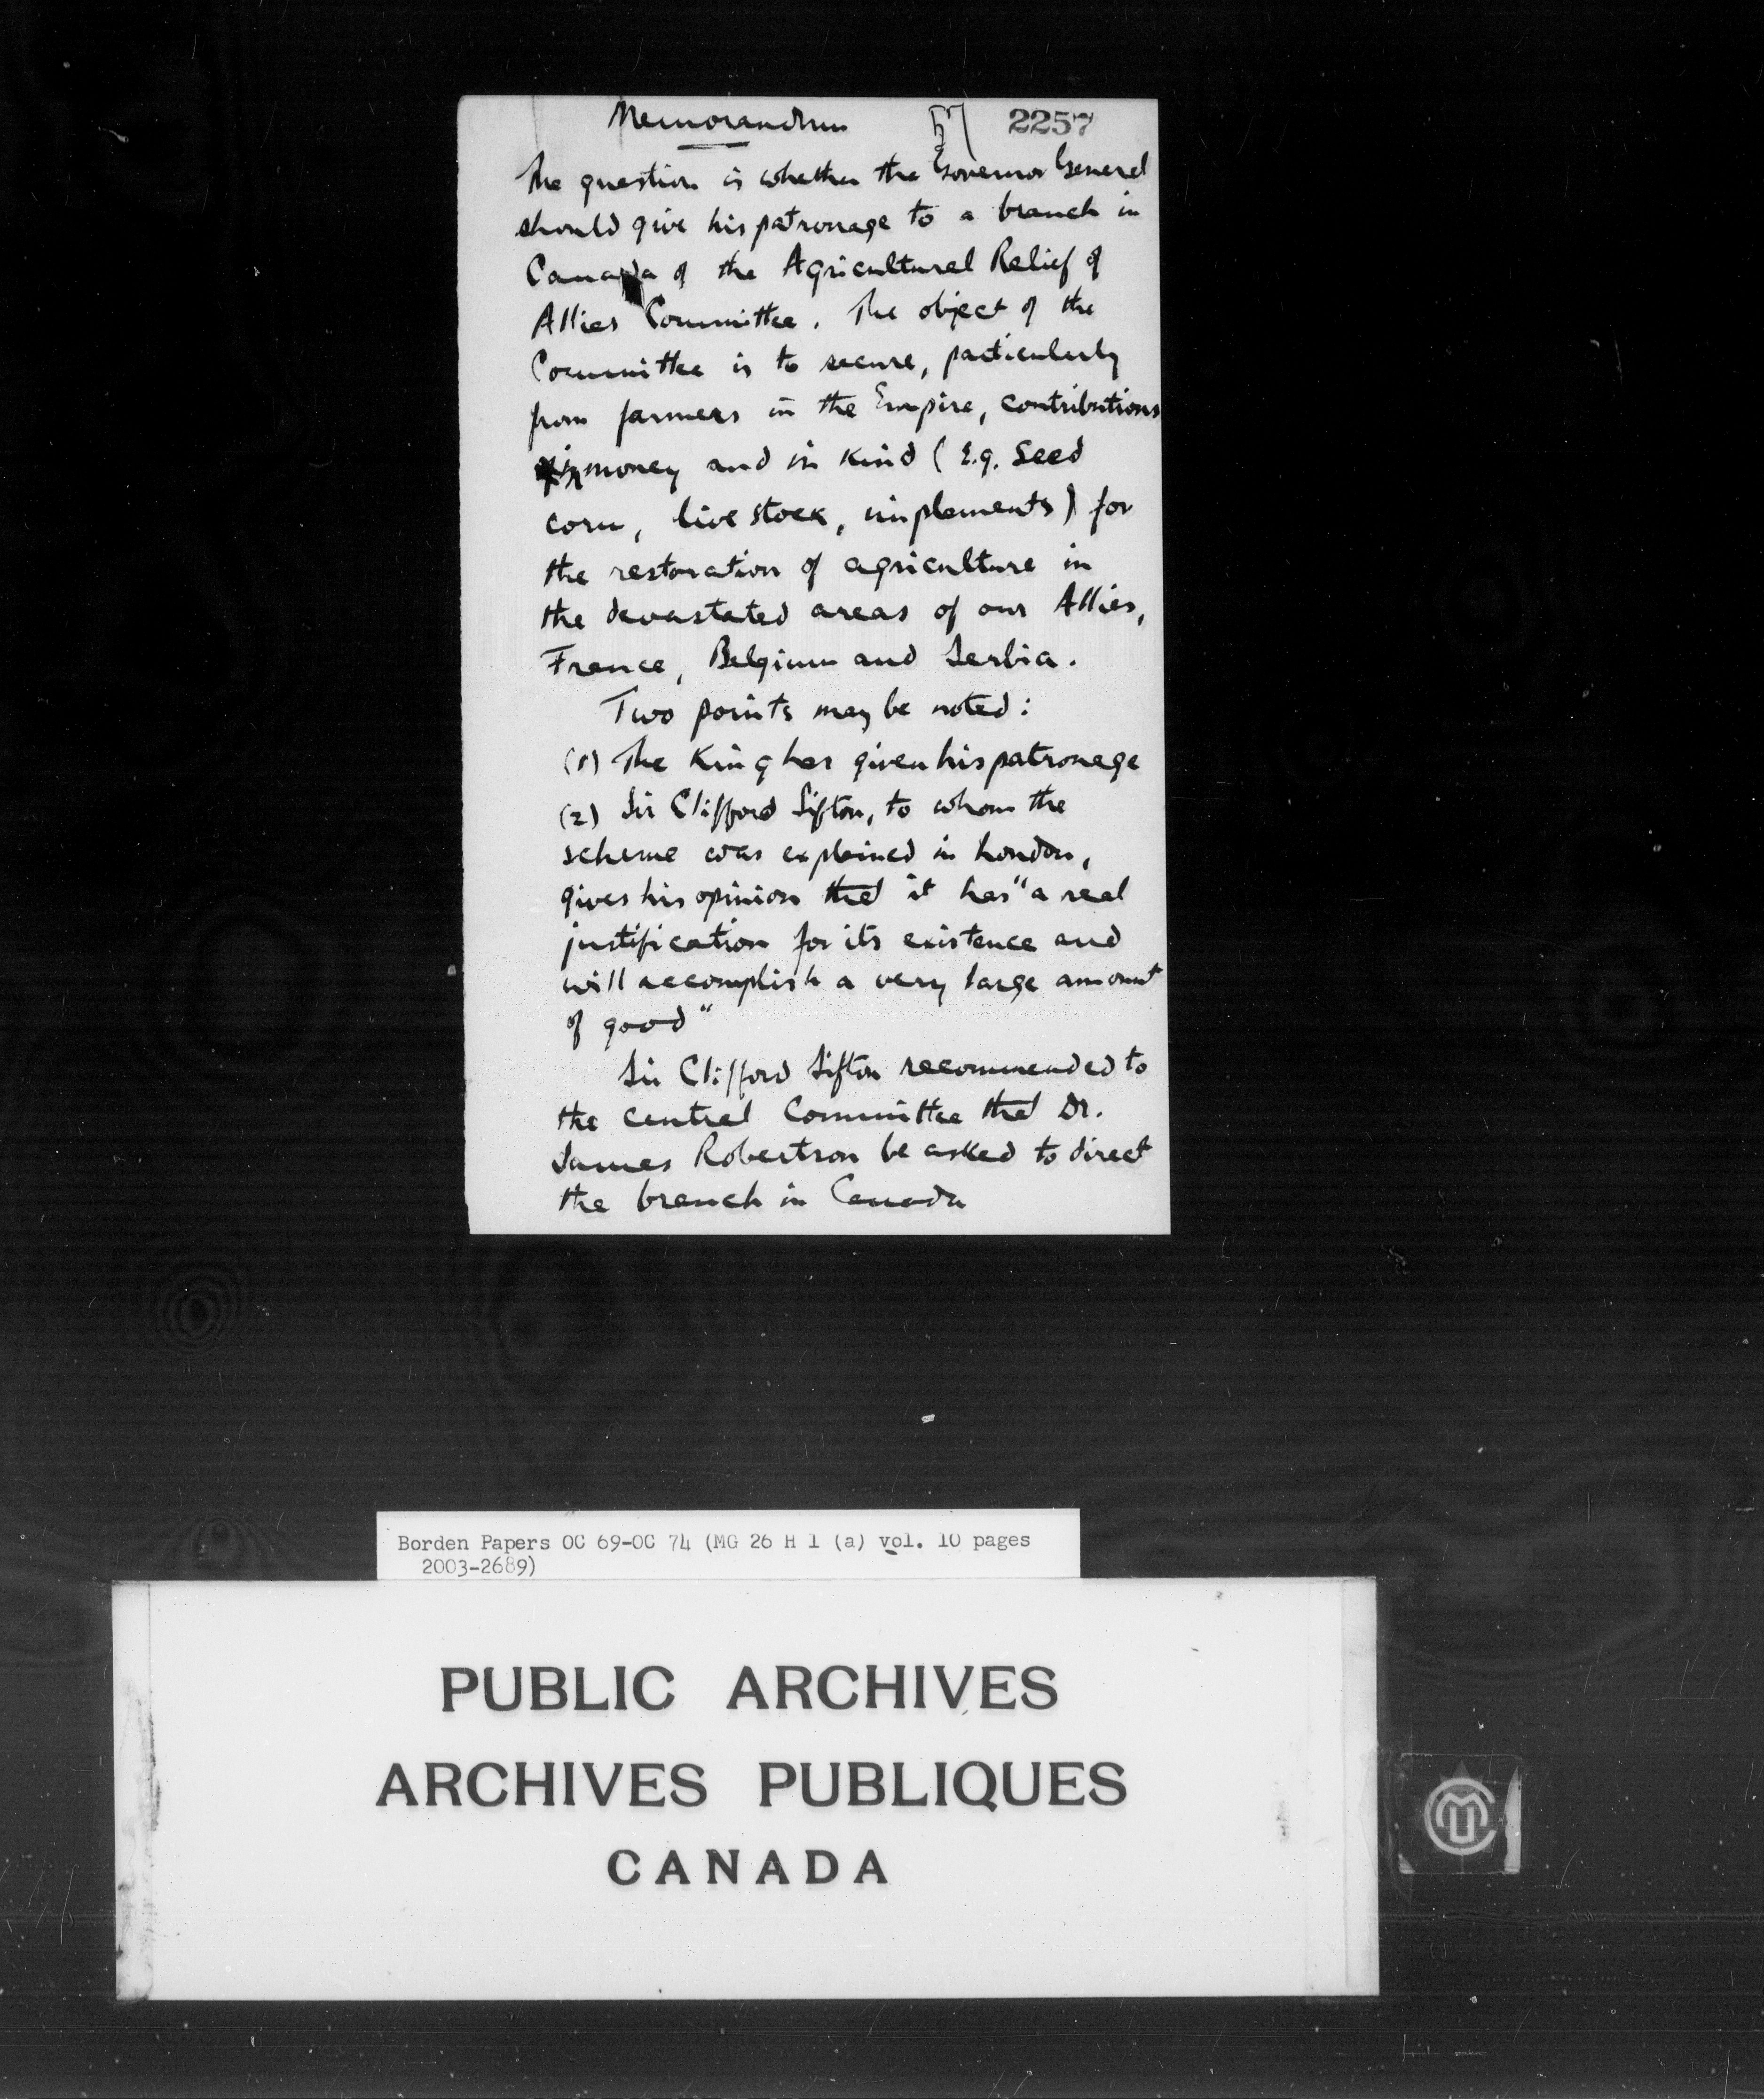 Memorandum 2257
The question is whether the Governor General
should give his patronage to a branch in
Canada of the Agricultural Relief of
Allies Committee. The object of the
Committee is to secure, particularly
from farmers in the Empire, contributions
in money and in kind (E.g. seed
corn, live stock, implements) for
the restoration of agriculture in
the devastated areas of our Allies,
France, Belgium and Serbia.
Two points may be noted:
(1) The King has given his patronage
(2) Sir Clifford Sifton, to whom the
scheme was explained in London,
gives his opinion that it has "a real
justification for its existence and
will accomplish a very large amount
of good"
Sir Clifford Sifton recommended to
the central Committee that Dr.
James Robertson be asked to direct
the branch in Canada
Borden Papers OC 69-OC 74 (MG 26 H 1 (a) vol. 10 pages
2003-2689)
PUBLIC ARCHIVES
ARCHIVES PUBLIQUES
CANADA